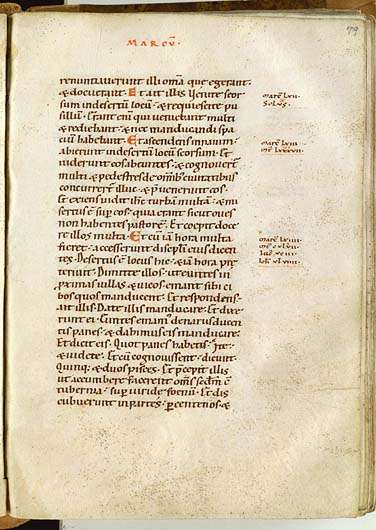 79
MARCŪ
renuntiaverunt illi om̄a que egerant
& docuerant. Et ait illis. Uenite seor
sum indesertū locū. & requiescite pu
sillū. Erant eni qui ueniebant multi
& rediebant. & nec manducandi spa
ciū habebant. Et ascendens innauim
abierunt indesertū locū seorsum. Et
uiderunt eos abeuntes. & cognouer
multi. & pedestres de omib; ciuitatibus
concurrer illuc. & p̄uenerunt eos.
Et exiens uidit ihc̄ turbā multā. & mi
sertus ē sup eos. quia erant sicut oues
non habentes pastorē. Et coepit doce
re illos multa. Et cū iā hora multa
fier&. accesserunt discipli eius dicen
tes. Desertus ē locus hic. & iā hora pre
teriuit. Dimitte illos. ut euntes in
proximas uillas & uicos emant sibi ci
bos quos manducent. Et respondens
ait illis. Date illis manducare. Et dixe
runt ei. Euntes emam' denarus ducen
tis panes. & dabimus eis manducare.
Et dicit eis. Quot panes habetis. Ite.
& uidete. Et cū cognouissent. dicunt.
Quinq; & duos pisces. Et p̄cepit illis
ut accumbere facerent om̄s scdm c̄
tubernia. sup uiride foenū. Et dis
cubuerunt in partes. p centenos. &